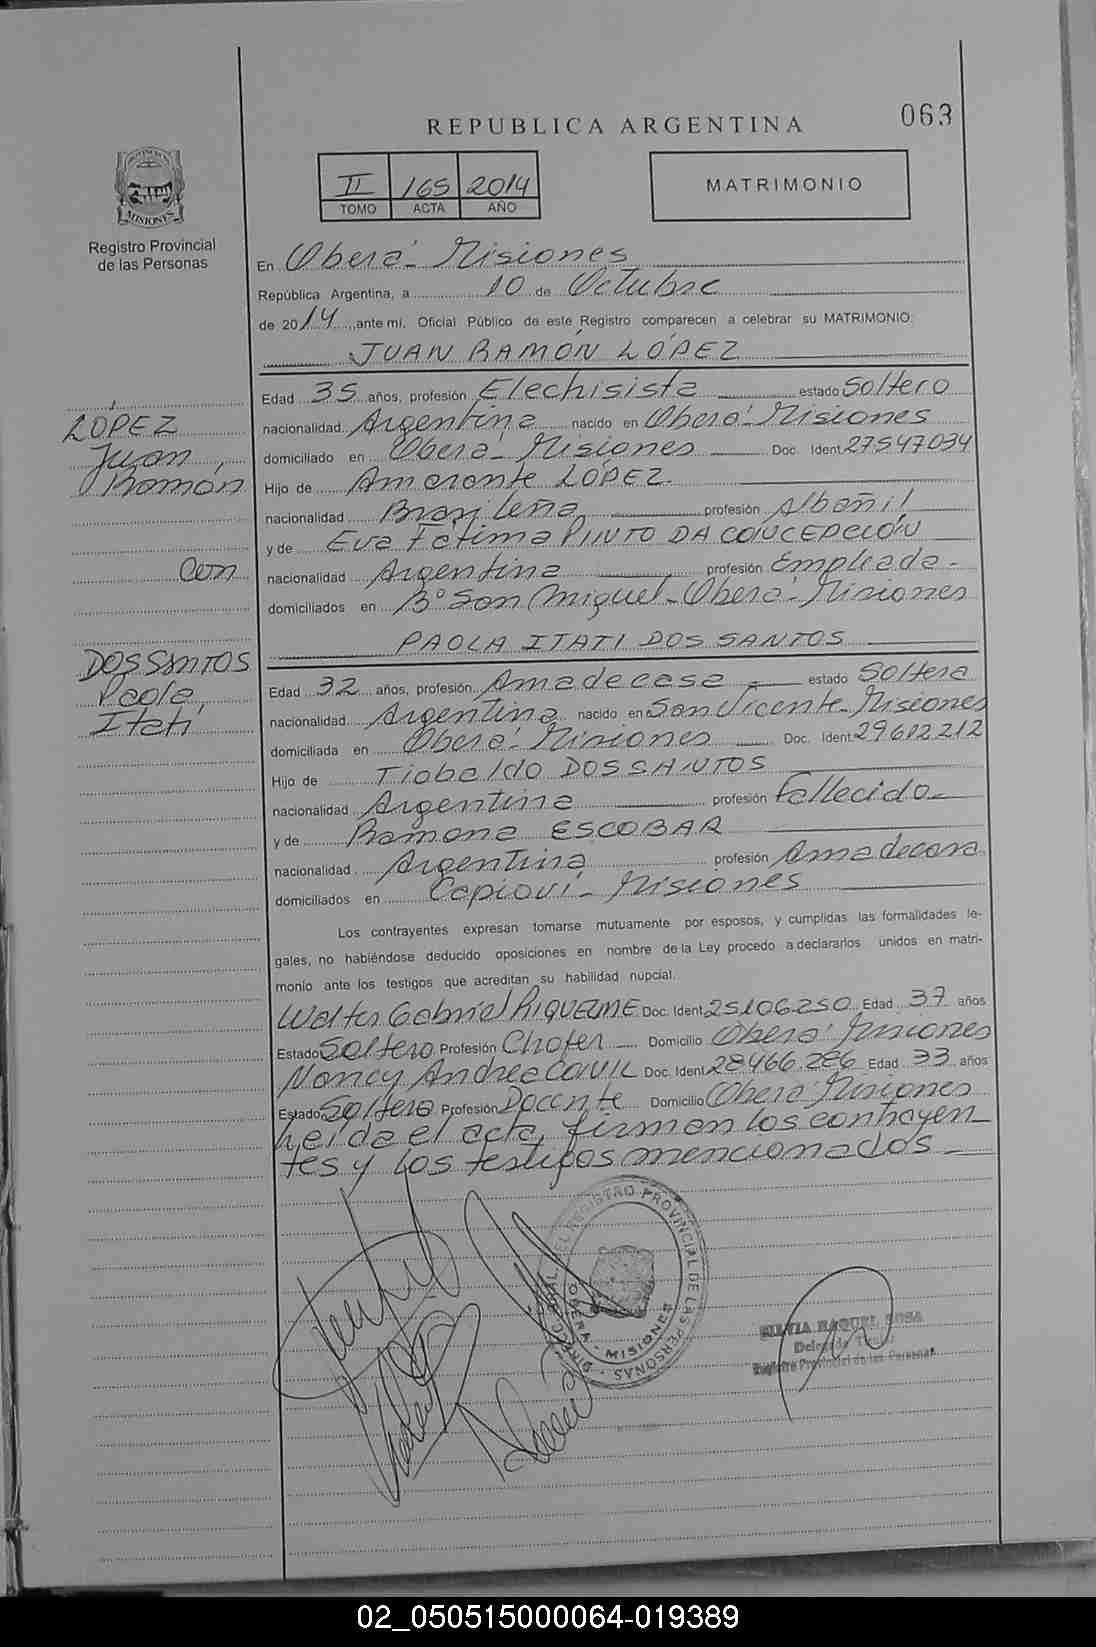 063
REPUBLICA ARGENTINA
II 165 2014
TOMO ACTA AÑO
MATRIMONIO
PROVINCIA DE
MISIONES
Registro Provincial
de las Personas
En Oberá - Misiones
República Argentina, a 10 de Octubre
de 2014 ante mí, Oficial Público de este Registro comparecen a celebrar su MATRIMONIO:
JUAN RAMÓN LÓPEZ
LÓPEZ
Juan,
Ramón
con
DOS SANTOS
Paola,
Itatí
Edad 35 años, profesión Elechisista estado Soltero
nacionalidad Argentina nacido en Oberá - Misiones
domiciliado en Oberá - Misiones Doc. Ident. 27547034
Hijo de Amarante LÓPEZ
nacionalidad Brasileña profesión Albañil
y de Eva Fátima PINTO DA CONCEPCIÓN
nacionalidad Argentina profesión Empleada -
domiciliados en B° San Miguel - Oberá - Misiones
PAOLA ITATI DOS SANTOS
Edad 32 años, profesión Ama de casa estado Soltera
nacionalidad Argentina nacido en San Vicente - Misiones
domiciliada en Oberá - Misiones Doc. Ident. 29612212
Hijo de Tiobaldo DOS SANTOS
nacionalidad Argentina profesión Fallecido -
y de Ramona ESCOBAR
nacionalidad Argentina profesión Ama de casa
domiciliados en Capioví - Misiones
Los contrayentes expresan tomarse mutuamente por esposos, y cumplidas las formalidades le-
gales, no habiéndose deducido oposiciones en nombre de la Ley procedo a declararlos unidos en matri-
monio ante los testigos que acreditan su habilidad nupcial.
Walter Gabriel RIQUELME Doc. Ident. 25.106.250 Edad 37 años
Estado Soltero Profesión Chofer Domicilio Oberá Misiones
Nancy Andrea CAVIL Doc. Ident. 28.466.286 Edad 33 años
Estado Soltera Profesión Docente Domicilio Oberá Misiones
Leída el acta, firman los contrayen-
tes y los testigos mencionados
DEL REGISTRO PROVINCIAL DE LAS PERSONAS
OBERA - MISIONES
SILVIA RAQUEL SOSA
Registro Provincial de las Personas
02_050515000064-019389